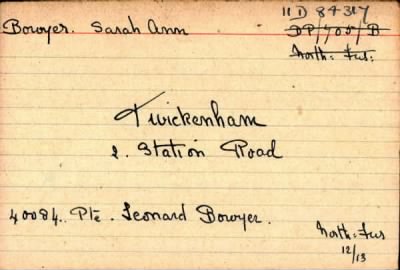 11 D 84317
Bowyer. Sarah Ann
DP/405/B
North: Fus:
Twickenham
2. Station Road
40084. Pte. Leonard Bowyer.
North: Fus
12/13